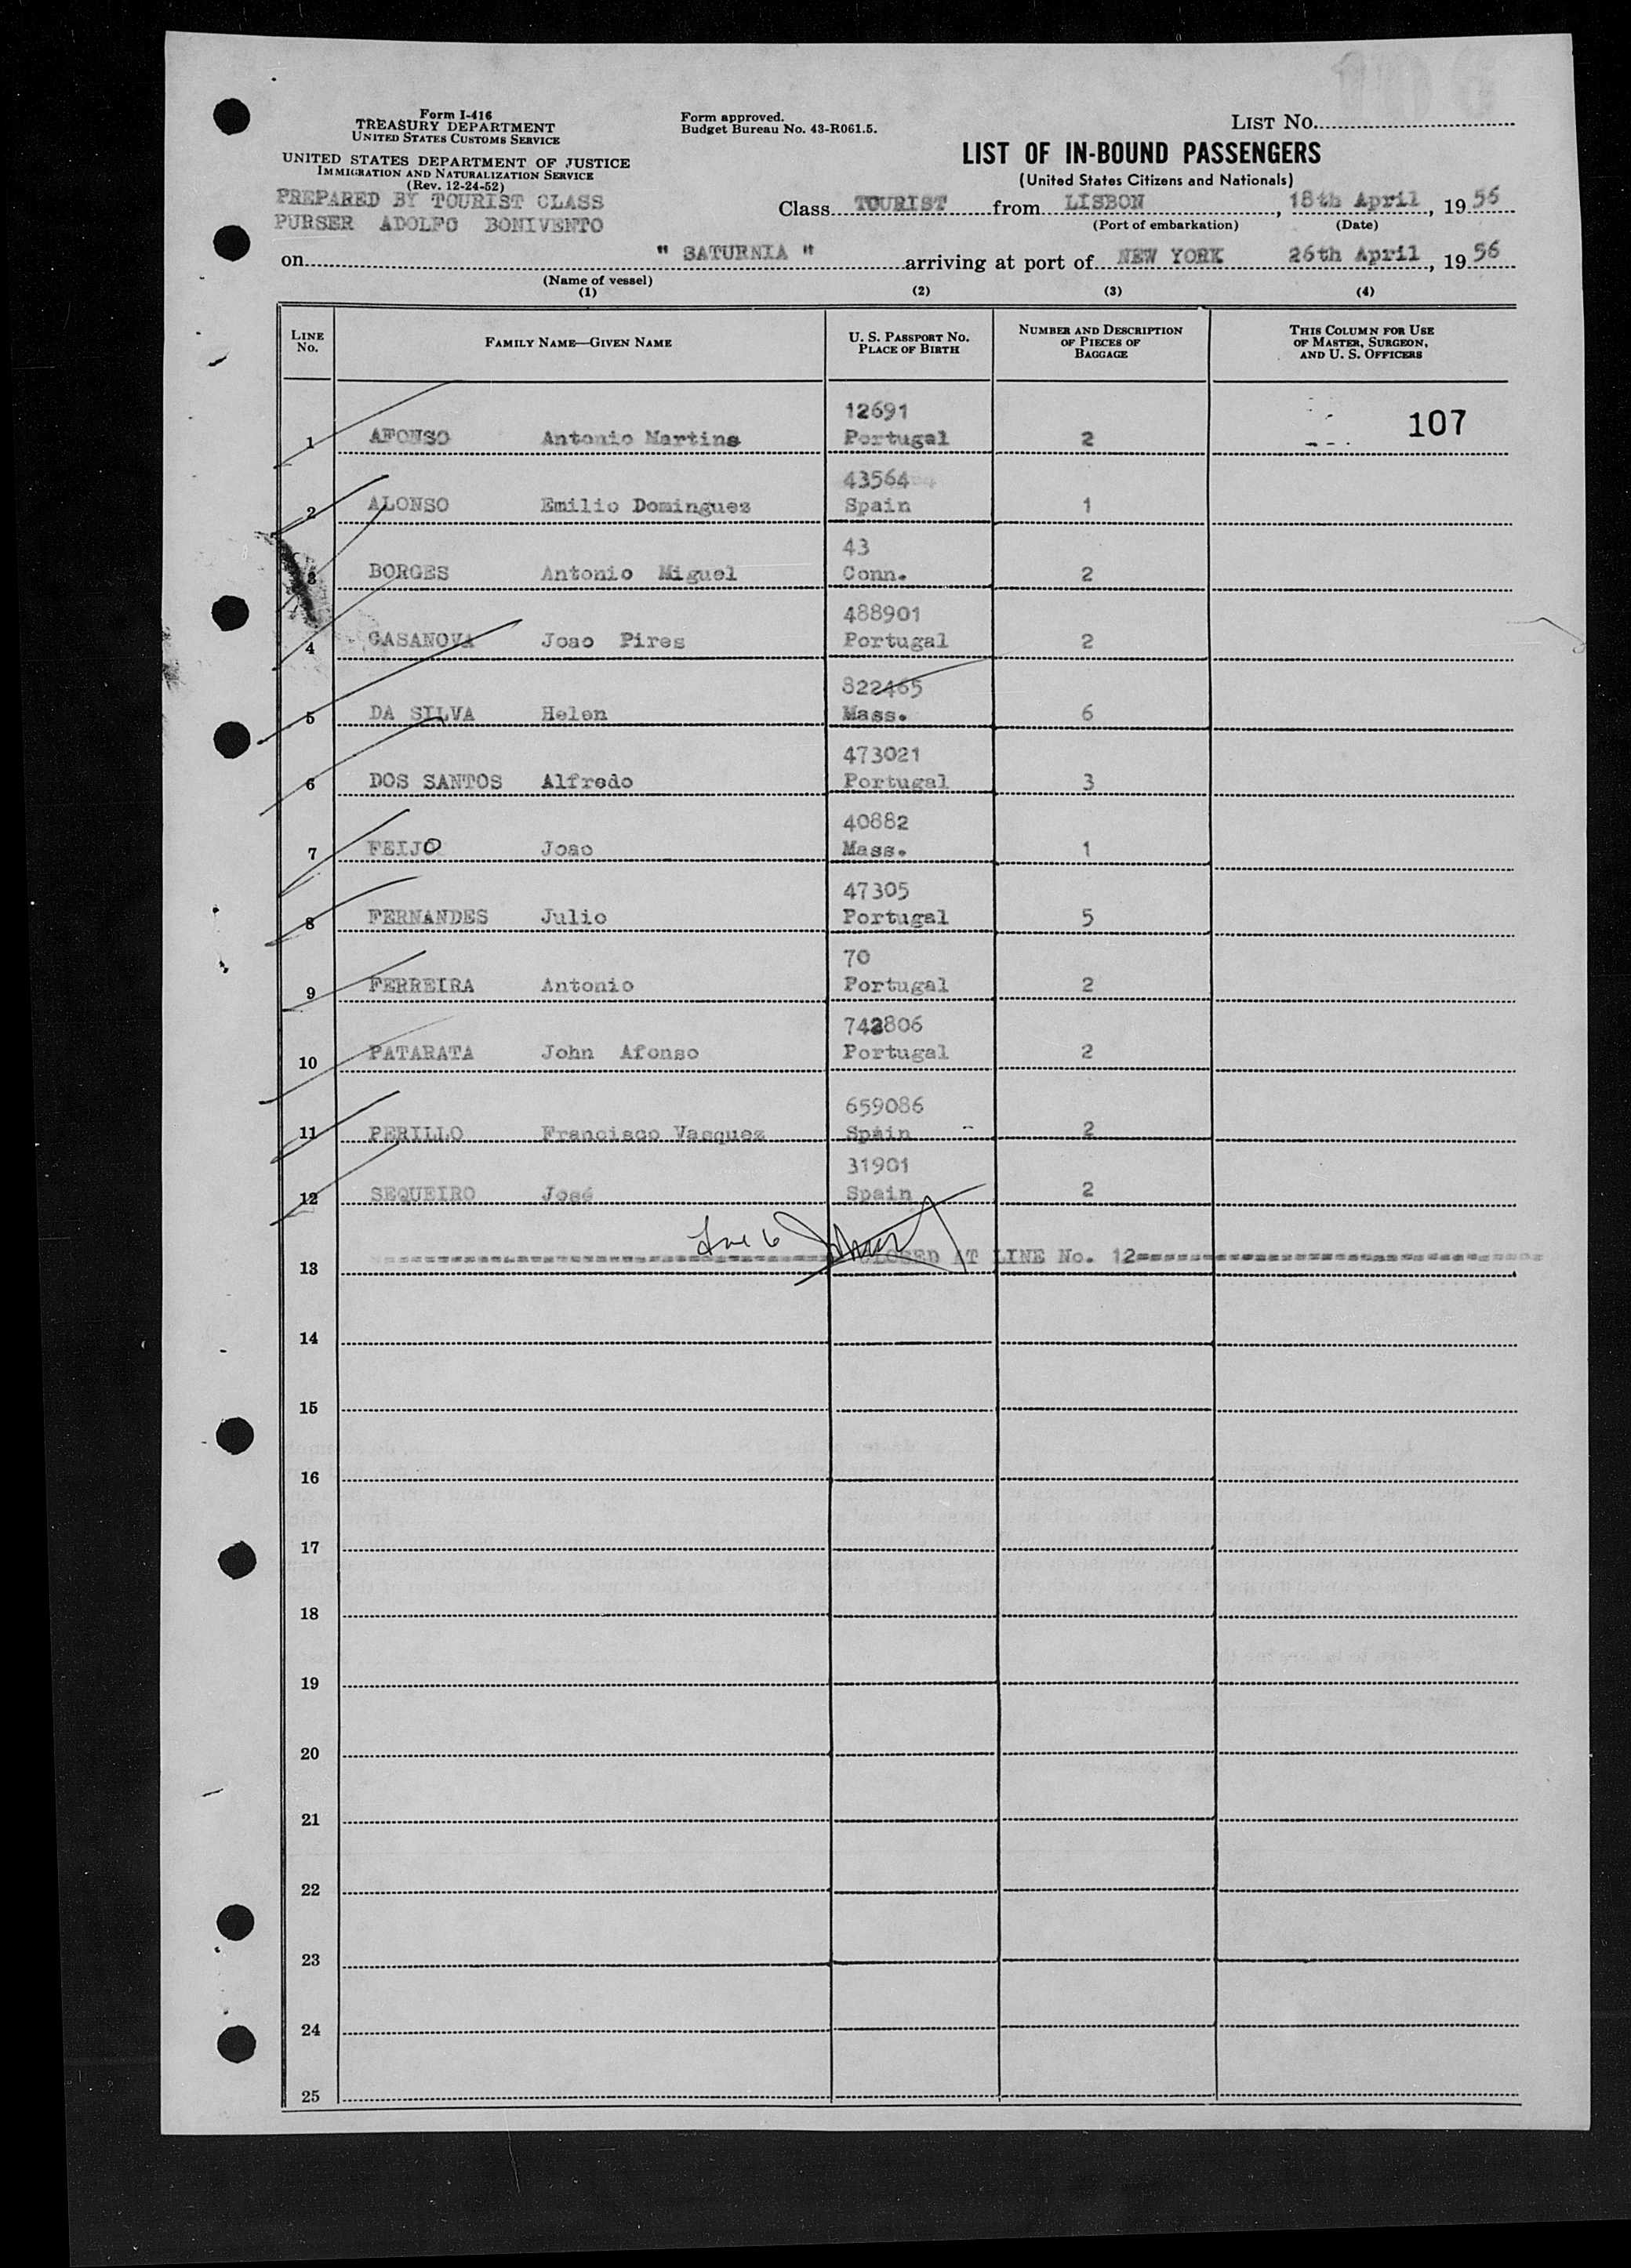 Form I-416
TREASURY DEPARTMENT
UNITED STATES CUSTOMS SERVICE
UNITED STATES DEPARTMENT OF JUSTICE
IMMIGRATION AND NATURALIZATION SERVICE
(Rev. 12-24-52)
PREPARED BY TOURIST CLASS
PURSER ADOLFO BONIVENTO
Form approved.
Budget Bureau No. 43-R061.5.
LIST No.
LIST OF IN-BOUND PASSENGERS
(United States Citizens and Nationals)
Class TOURIST from LISBON, 18th April, 19 56
(Port of embarkation) (Date)
on " SATURNIA " arriving at port of NEW YORK 26th April, 19 56
(Name of vessel)
(1) (2) (3) (4)
LINE No. FAMILY NAME—GIVEN NAME U. S. PASSPORT NO. PLACE OF BIRTH NUMBER AND DESCRIPTION OF PIECES OF BAGGAGE THIS COLUMN FOR USE OF MASTER, SURGEON, AND U. S. OFFICERS
12691 107
1 AFONSO Antonio Martins Portugal 2
43564
2 ALONSO Emilio Dominguez Spain 1
43
3 BORGES Antonio Miguel Conn. 2
488901
4 CASANOVA Joao Pires Portugal 2
822465
5 DA SILVA Helen Mass. 6
473021
6 DOS SANTOS Alfredo Portugal 3
40882
7 FEIJO Joao Mass. 1
47305
8 FERNANDES Julio Portugal 5
70
9 FERREIRA Antonio Portugal 2
742806
10 PATARATA John Afonso Portugal 2
659086
11 PERILLO Francisco Vasquez Spain 2
31901
12 SEQUEIRO José Spain 2
13 CLOSED AT LINE No. 12
14
15
16
17
18
19
20
21
22
23
24
25